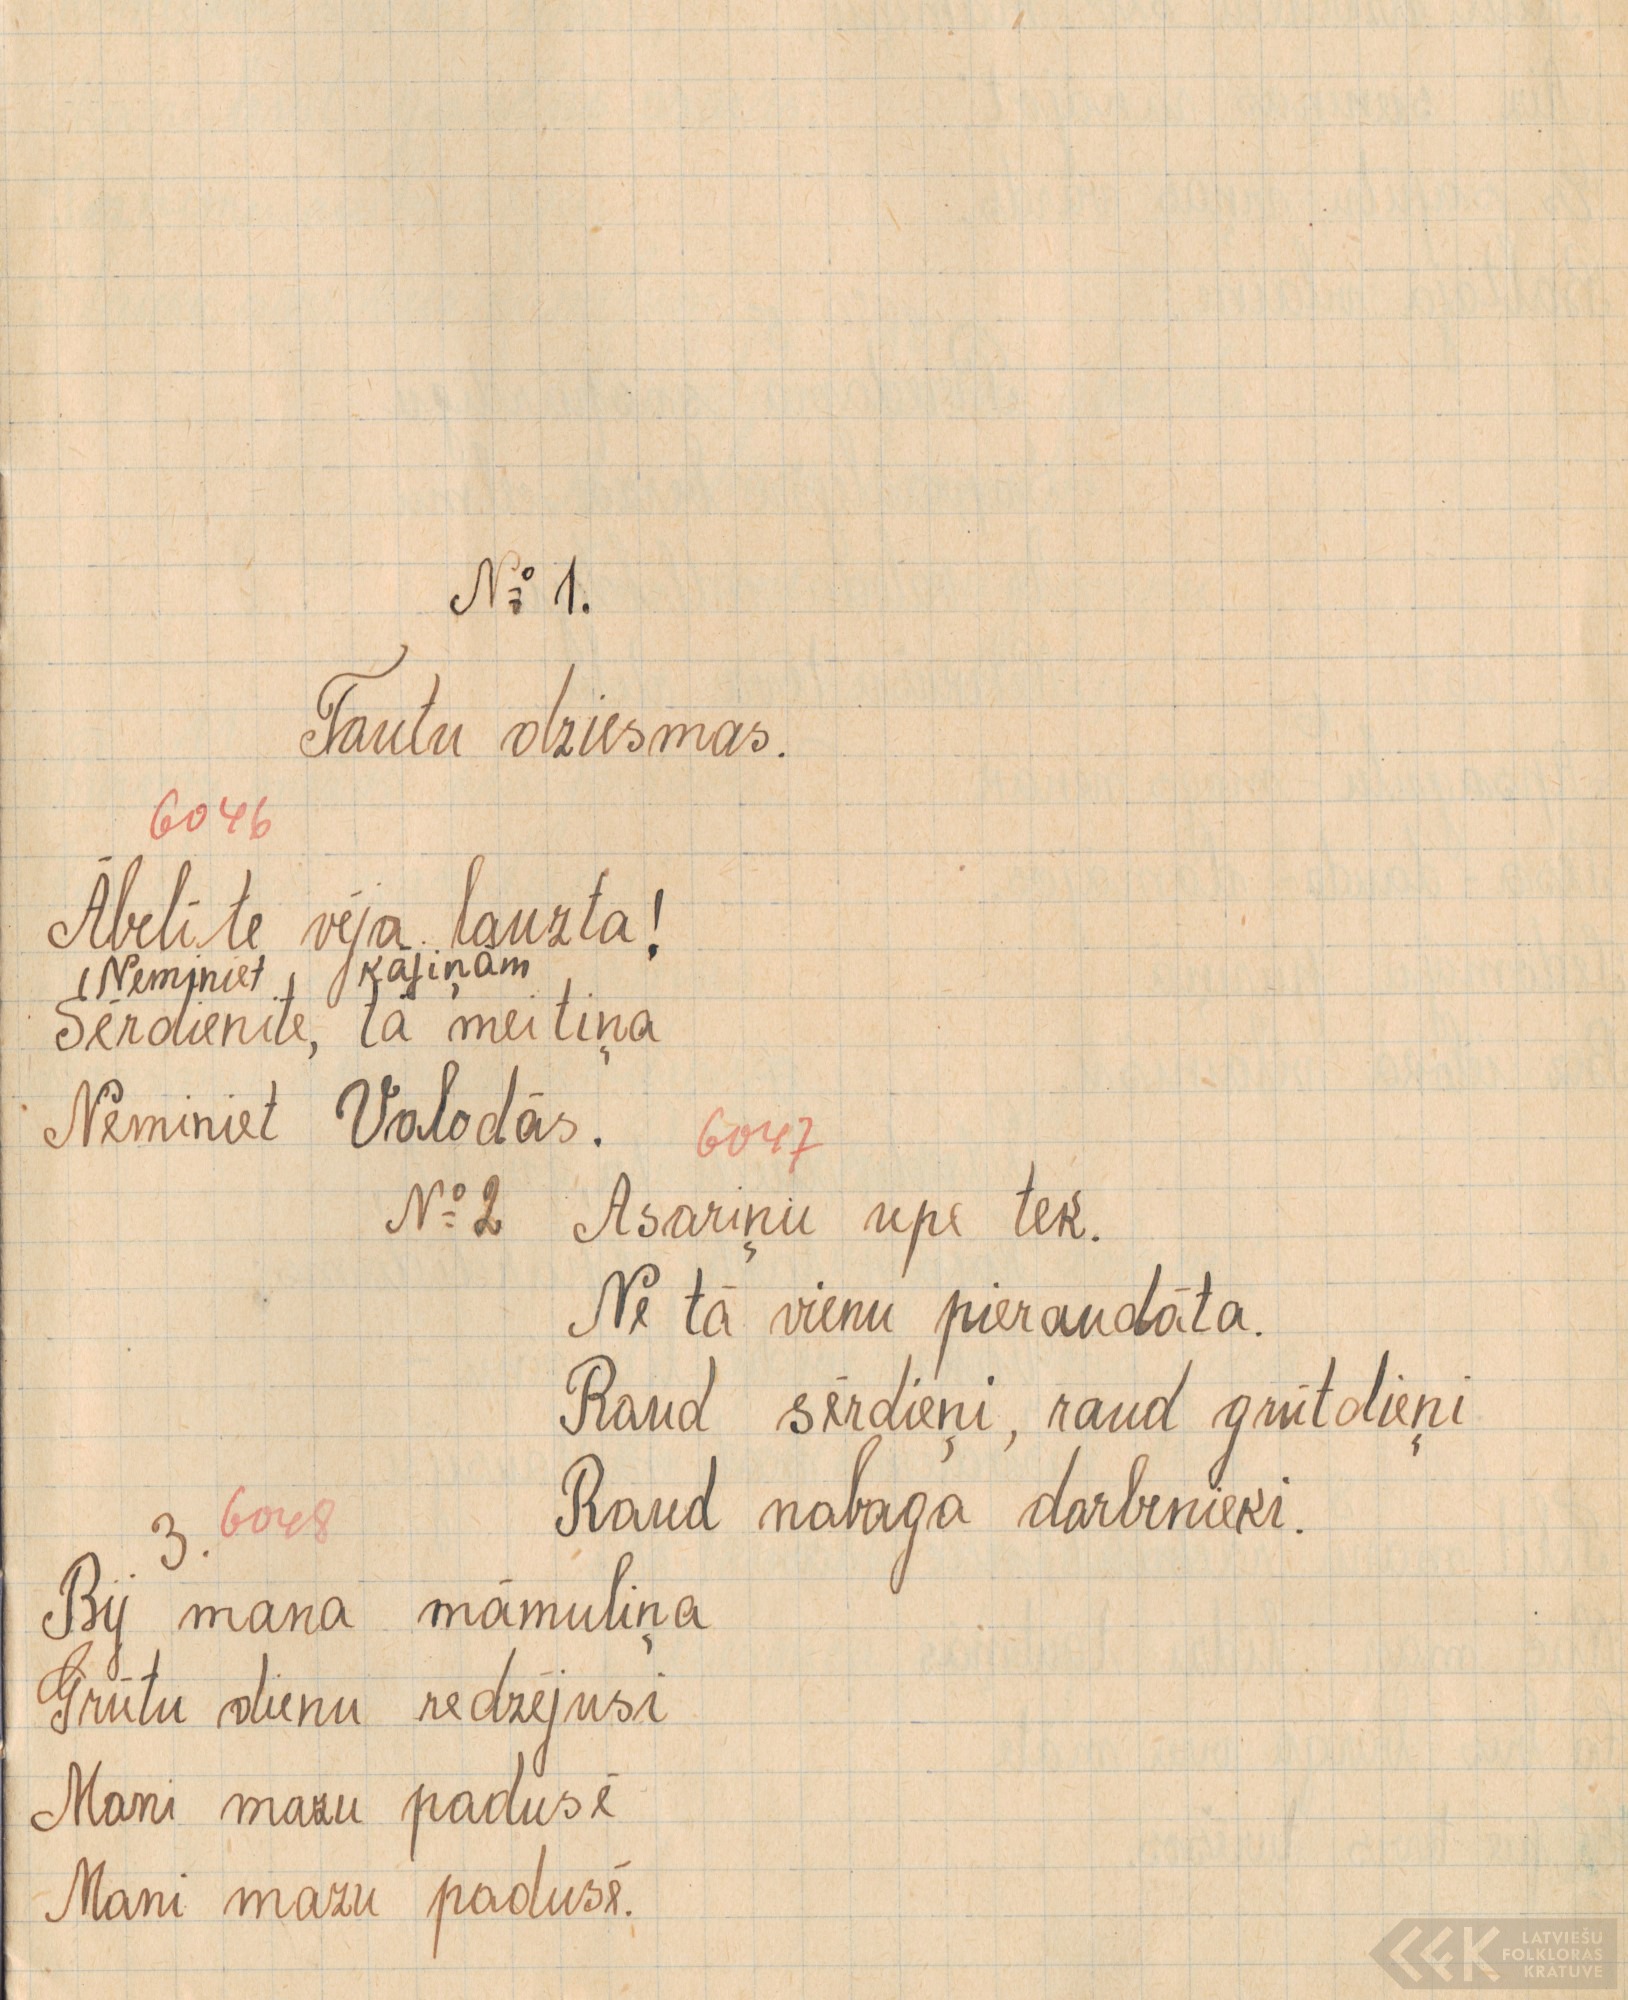 № 1.
Tautu dziesmas.
6046
Ābelīte vēja lauzta!
Neminiet kājiņām
Sērdienīte, tā meitiņa
Neminiet Valodās.
6047
№ 2 Asariņu upe tek.
Ne tā vienu pieraudāta.
Raud sērdieņi, raud grūtdieņi
Raud nabaga darbenieki.
3. 6048
Bij mana māmuliņa
Grūtu dienu redzējusi
Mani mazu padusē
Mani mazu padusē.
LATVIEŠU
FOLKLORAS
KRĀTUVE